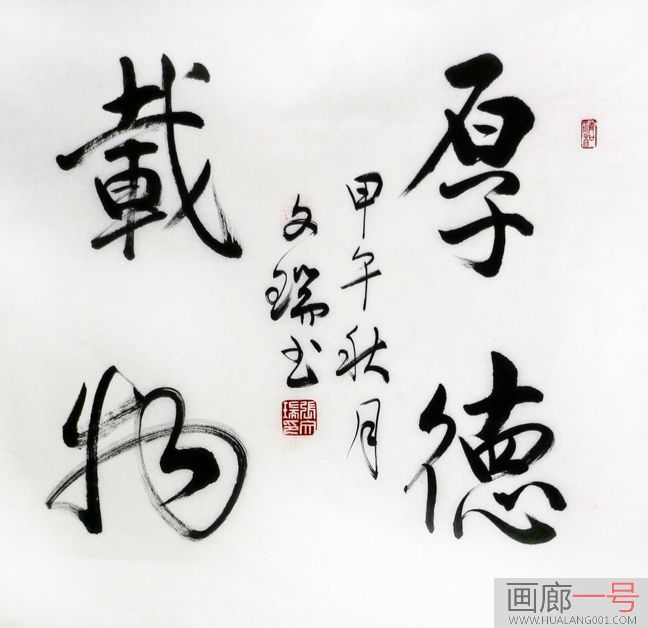 厚德
載物
甲午秋月
文瑞书
張文瑞印
画廊一号
WWW.HUALANG001.COM